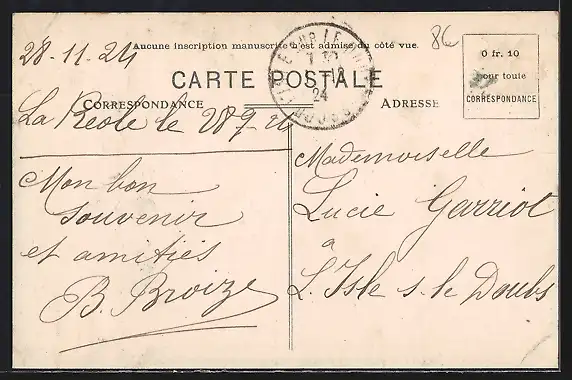 28-11-24
Aucune inscription manuscrite n'est admise du côté vue.
86
CARTE POSTALE
0 fr. 10
pour toute
CORRESPONDANCE
CORRESPONDANCE
ADRESSE
24
DOUBS
La Réole le 28-9-24
Mademoiselle
Lucie Garriot
à
L'Isle s. le Doubs
Mon bon
souvenir
et amitiés
B. Broize